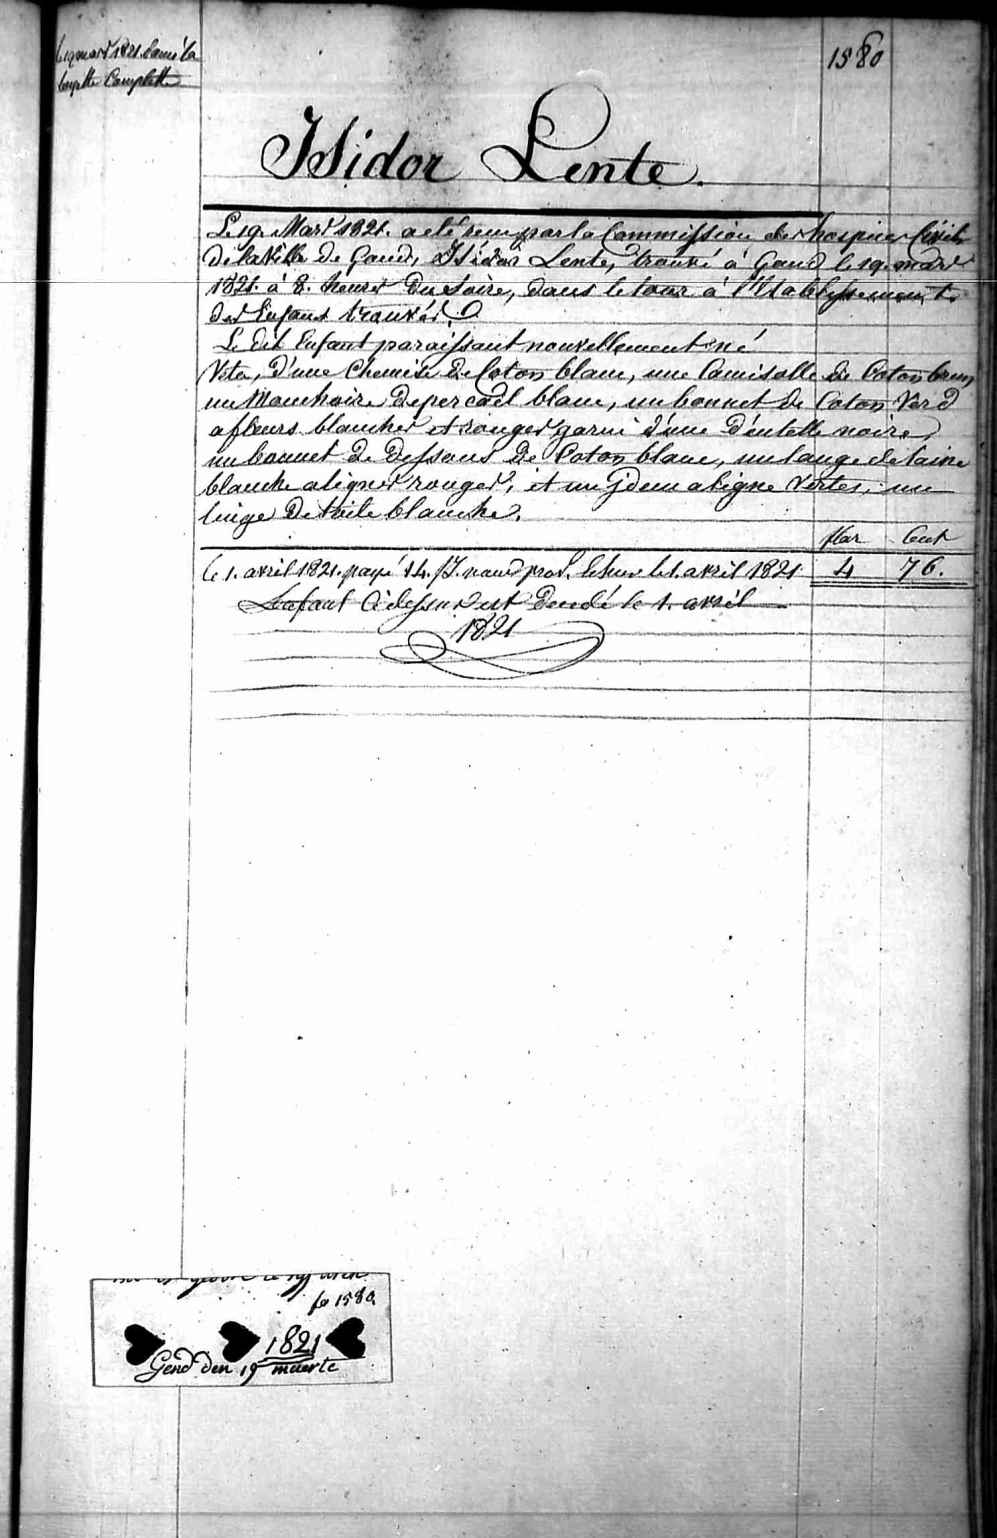 le 19 mars 1821. donné la
layette Complette
1580
Isidor Lente.
Le 19. Mars 1821. a eté recu par la Commission des hospices Civils
de la Ville de Gand, Isidor Lente, trouvé à Gand le 19. mars
1821. à 8. heures du Soire, dans le tour à l'Etablissement
des Enfans trouvés.
Le dit Enfant paraissant nouvellement né
Vetu, d'une Chemise de Coton blanc, une Camisolle de Coton brun
un Mouchoire de percaël blanc, un bonnet de Coton Verd
a fleurs blanches et rouges garni d'une dentelle noire,
un bonnet de dessous de Coton blanc, un lange de laine
blanche a lignes rouges, et un Jdem a ligne Vertes, un
linge de toile blanche.
flor Cent
Le 1. avril 1821. payé 14. le 1. avril 1821 4 76.
L'enfant Cidessus est decedé le 1. avril
1821
fo 1580
1821
Gend den 19 maerte